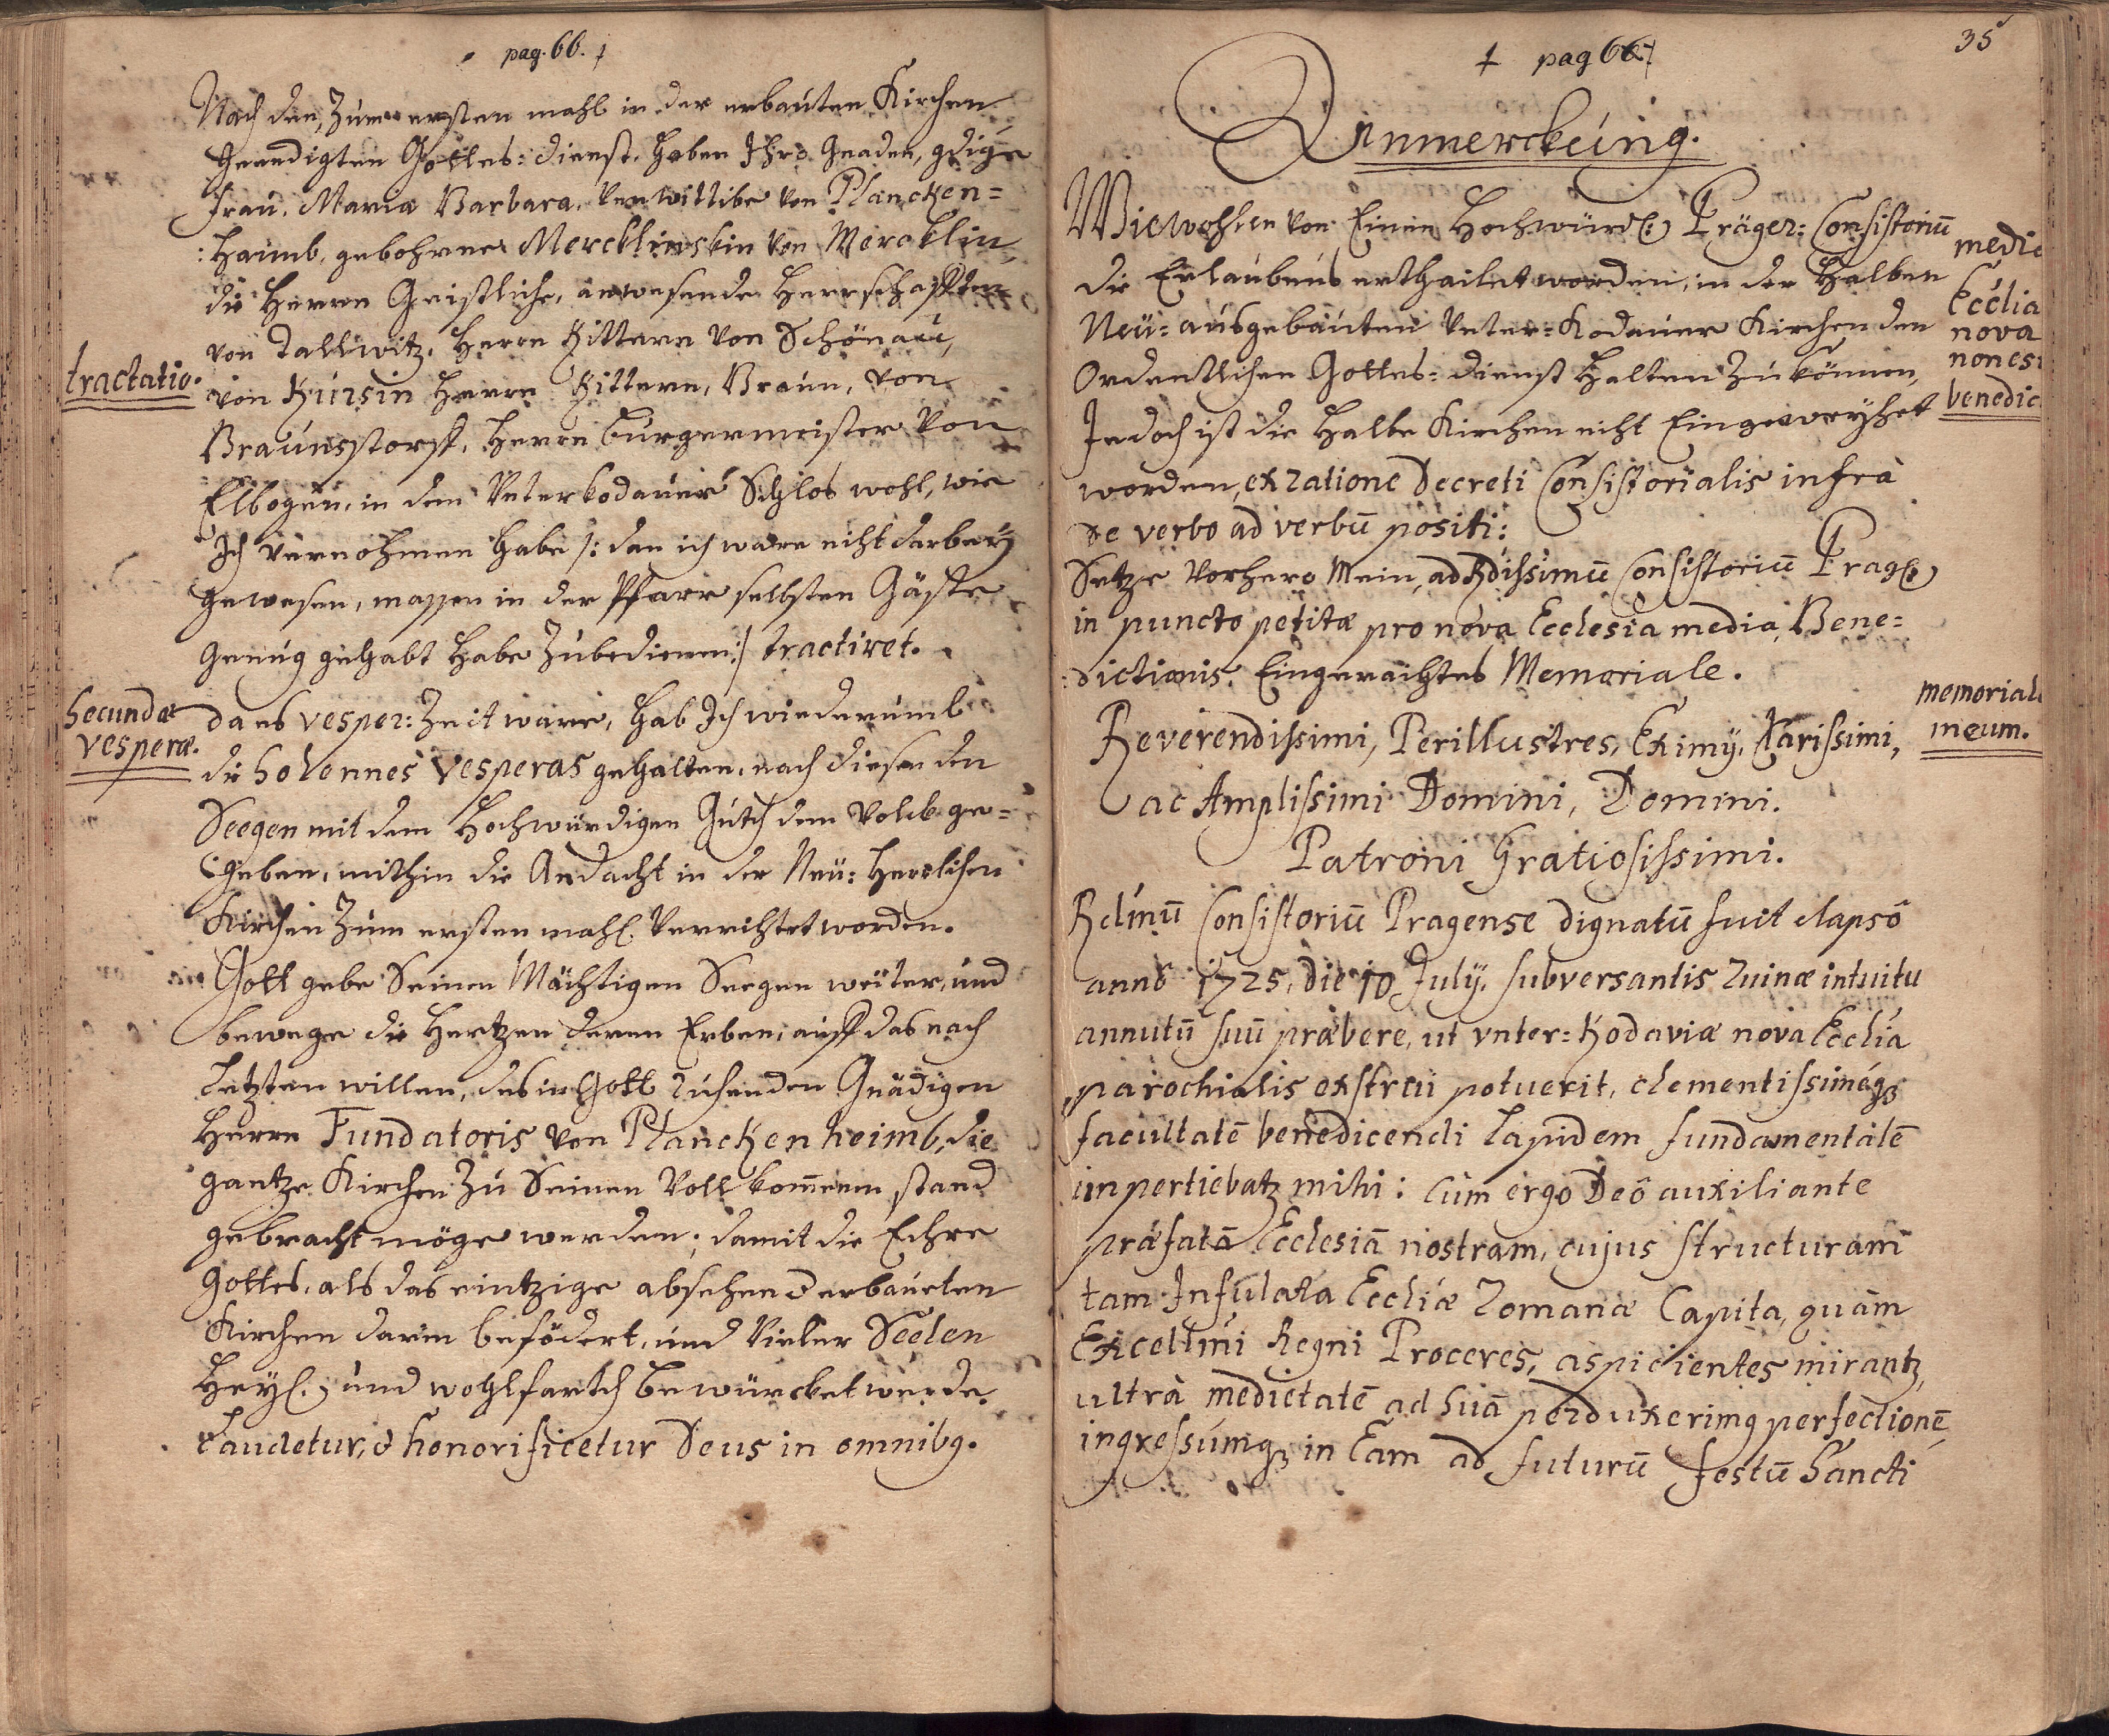 pag. 66. †
Nach den, Zum ersten mahl in der erbauten Kirchen
geendigten Gottes: dienst, haben Ihro Gnaden, gdige
Frau, Maria Barbara, Verwittibe von Plancken=
:haimb, gebohrne Mercklinskin von Mercklin,
die Herren Geistliche, anwesende Herrschafften
von Tallwitz, Herrn Rittern von Schönau,
tractatio.
von Kursin Herrn Rittern, Braun, von
Braunsstorff, Herrn burgermeister von
Elbogen, in dem Unterkodauer Schlos wohl, wie
Ich vernohmen habe /: dan ich ware nicht darbey
gewesen, massen in der Pfarr selbsten Gäste
genug gehabt habe Zubedienen :/ tractiret.
Secundæ
vesperæ.
da es vesper: Zeit ware, hab Ich wiederumb
die Solennes Vesperas gehalten, nach diesen den
Seegen mit dem Hochwürdigen Gutth dem Volck ge=
:geben, mithin die Andacht in der Neü: Herrlichen
Kirchen Zum ersten mahl Verrichtet worden.
Gott gebe Seinen Mächtigen Seegen weiter, und
bewege die Hertzen deren Erben, auff das nach
letzten willen, des in Gott ruhenden Gnädigen
Herrn Fundatoris von Planckenheimb, die
gantze Kirchen Zu Seinen Vollkom̄enen stand
gebracht möge werden; damit die Ehre
Gottes, als das eintzige absehen d erbauten
Kirchen darin befödert, und Vieler Seelen
Heyl, und wohlfarth bewürcket werde.
Laudetur, & honorificetur Deus in omnibq.
35
† pag 66 †
Anmerckung.
Wiewohlen von Einen Hochwürd(:) Präger: Consistoriū
die Erlaubnus erthailet worden, in der Halben
Neü: ausgebauten Unter=Kodauer Kirchen den
Ordentlichen Gottes: dienst halten zu können,
Jedoch ist die Halbe Kirchen nicht Eingeweyhet
worden, ex ratione Decreti Consistorialis infrà
de verbo ad verbū positi:
media
Ecclia
nova
non est
benedic
Setze Vorhero Mein, ad Rdissimū Consistoriū Prag(:)
in puncto petitæ pro nova Ecclesia media, Bene=
:dictionis Eingeraichtes Memoriale.
memoriale
meum.
Reverendissimi, Perillustres, Eximÿ, Clarissimi,
ac Amplissimi Domini, Domini.
Patroni Gratiosissimi.
Rdmū Consistoriū Pragense dignatū fuit elapsô
annô 1725, die 10 Julÿ, subversantis ruinæ intuitu
annutū suū præbere, ut vnter: Kodaviæ nova Ecclia
parochialis exstrui potuerit, clementissimèqꝫ
facultatē benedicendi lapidem fundamentalē
impertiebatꝫ mihi: Cum ergo Deô auxiliante
præfatā Ecclesiā nostram, cujus structuram
tam Infulata Eccliæ Romanæ Capita, quàm
Excellmi Regni Proceres, aspicientes mirantꝫ,
ultrà medietatē ad Suā perduxerimq perfectionē,
ingressumqꝫ in Eam ad futurū festū Sancti